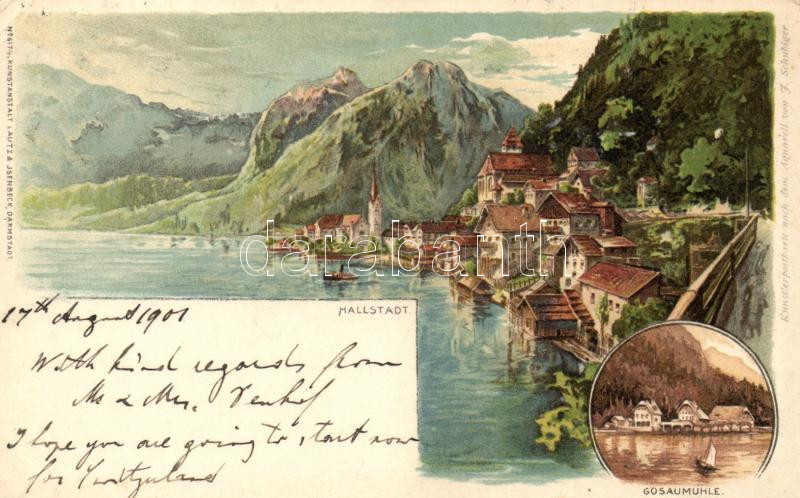 No 617½, KUNSTANSTALT LAUTZ & JSENBECK, DARMSTADT.
Künstlerpostkarte nach dem Aquarell von F. Schubiger
darabanth
HALLSTADT.
17th August 1901
With kind regards from
Mr & Mrs.
I hope you are going to start now
for Switzerland
GOSAUMÜHLE.